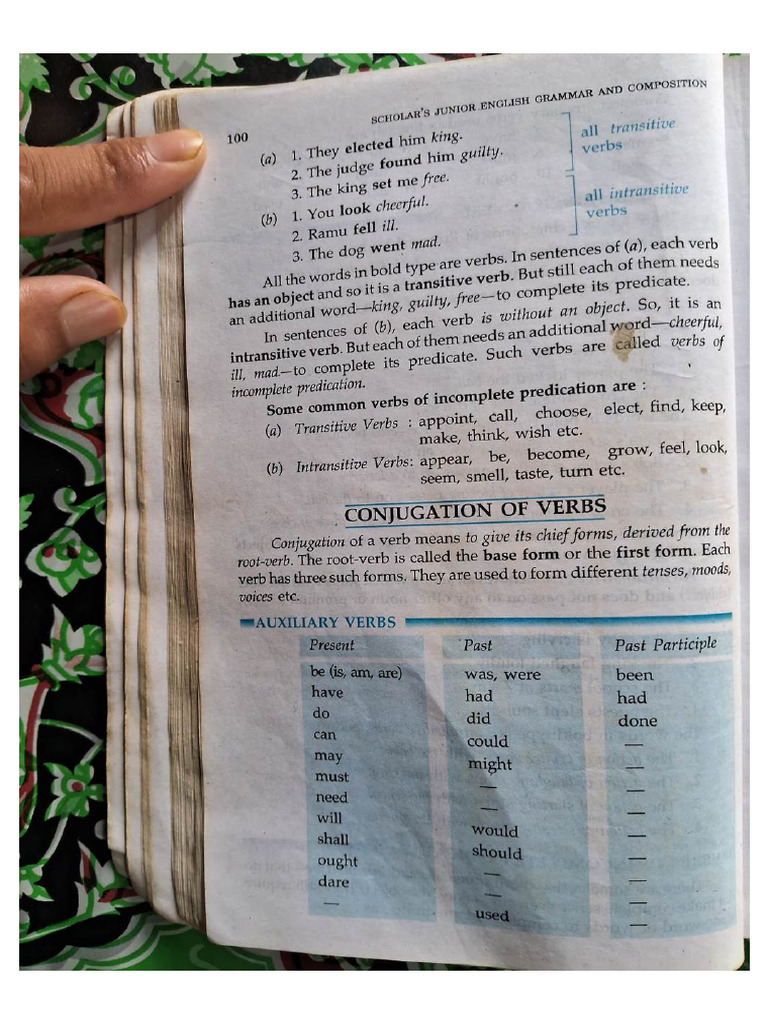 SCHOLAR'S JUNIOR ENGLISH GRAMMAR AND COMPOSITION
100
(a) 1. They elected him king.
2. The judge found him guilty.
3. The king set me free.
all transitive
verbs
(b) 1. You look cheerful.
2. Ramu fell ill.
3. The dog went mad.
all intransitive
verbs
All the words in bold type are verbs. In sentences of (a), each verb
has an object and so it is a transitive verb. But still each of them needs
an additional word—king, guilty, free—to complete its predicate.
In sentences of (b), each verb is without an object. So, it is an
intransitive verb. But each of them needs an additional word—cheerful,
ill, mad.—to complete its predicate. Such verbs are called verbs of
incomplete predication.
Some common verbs of incomplete predication are :
(a) Transitive Verbs : appoint, call, choose, elect, find, keep,
make, think, wish etc.
(b) Intransitive Verbs: appear, be, become, grow, feel, look,
seem, smell, taste, turn etc.
CONJUGATION OF VERBS
Conjugation of a verb means to give its chief forms, derived from the
root-verb. The root-verb is called the base form or the first form. Each
verb has three such forms. They are used to form different tenses, moods,
voices etc.
AUXILIARY VERBS
Present Past Past Participle
be (is, am, are) was, were been
have had had
do did done
can could —
may might —
must — —
need — —
will would —
shall should —
ought — —
dare — —
— used —